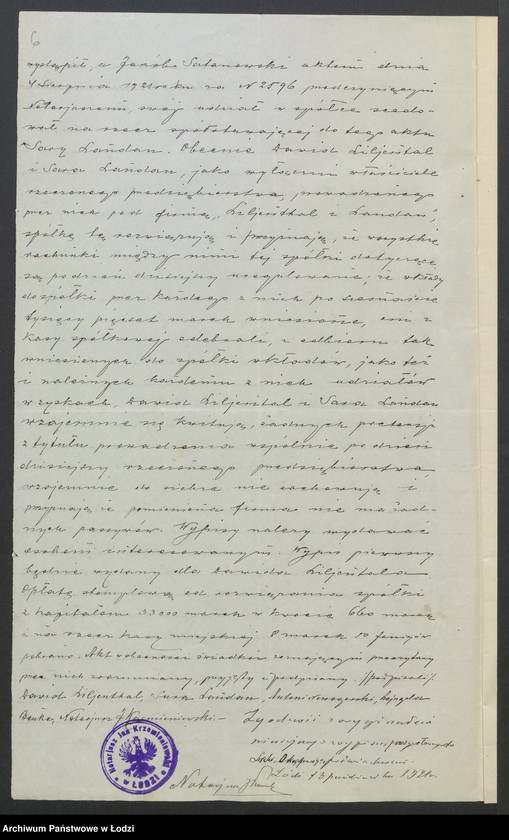 6
wystąpił, a Jakób Satanowski aktem dnia
4 Sierpnia 1921 roku za N 2596 przedemną
Notarjuszem, swój udział w spółce scedo-
wał na rzecz współstawającej do tego aktu
Sary Landau. Obecnie Dawid Liljental
i Sara Landau, jako wyłączni właściciele
rzeczonego przedsiębiorstwa, prowadzonego
przez nich pod firmą "Liljenthal i Landau",
spółkę tę rozwiązują i przyznają, że wszystkie
rachunki między nimi tej spółki dotyczące
są po dzień dzisiejszy uregulowane; że wkłady
do spółki, przez każdego z nich po szesnaście
tysięcy pięćset marek wniesione, oni z
kasy spółkowej odebrali, z odbioru tak
wniesionych do spółki wkładów, jako też
i należnych każdemu z nich udziałów
w zyskach, Dawid Liljental i Sara Landau
wzajemnie się kwitują, żadnych pretensji
z tytułu prowadzenia wspólnie po dzień
dzisiejszy rzeczonego przedsiębiorstwa
wzajemnie do siebie nie zachowują i
przyznają, że pomieniona firma nie ma żad-
nych passywów. Wypisy należy wydawać
osobom interesowanym. Wypis pierwszy
będzie wydany dla Dawida Liljentala
Opłatę stemplową od rozwiązania spółki
z kapitałem 33000 marek w kwocie 660 marek
i na rzecz kasy miejskiej marek 50 fenigów
pobrano. Akt w obecności świadków przeczytany
przez nich zrozumiany, przyjęty i podpisany. /podpisali/
Dawid Liljenthal, Sara Landau, Antoni
Notarjusz J. Krzemieniewski.-
Zgodność z oryginałem
niniejszego wypisu
Łódź 13 października 1921 r.
Notarjusz
Notarjusz Jan Krzemieniewski
w ŁODZI
Archiwum Państwowe w Łodzi